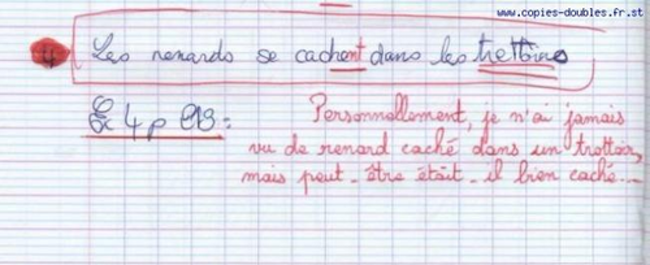 www.copies-doubles.fr.st
4 Les renards se cachent dans les trottoirs
Ex 4 p 213 :
Personnellement, je n'ai jamais
vu de renard caché dans un trottoir,
mais peut-être était-il bien caché...